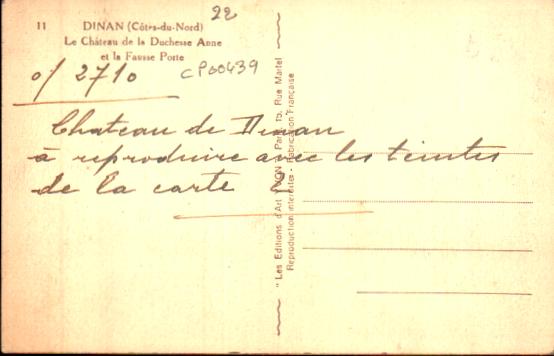 22
11 DINAN (Côtes-du-Nord)
Le Château de la Duchesse Anne
et la Fausse Porte
o/ 2710
CP00439
Chateau de Dinan
à reproduire avec les teintes
de la carte
"Les Editions d'Art YVON" Paris, 15, Rue Martel
Reproduction interdite - Fabrication Française